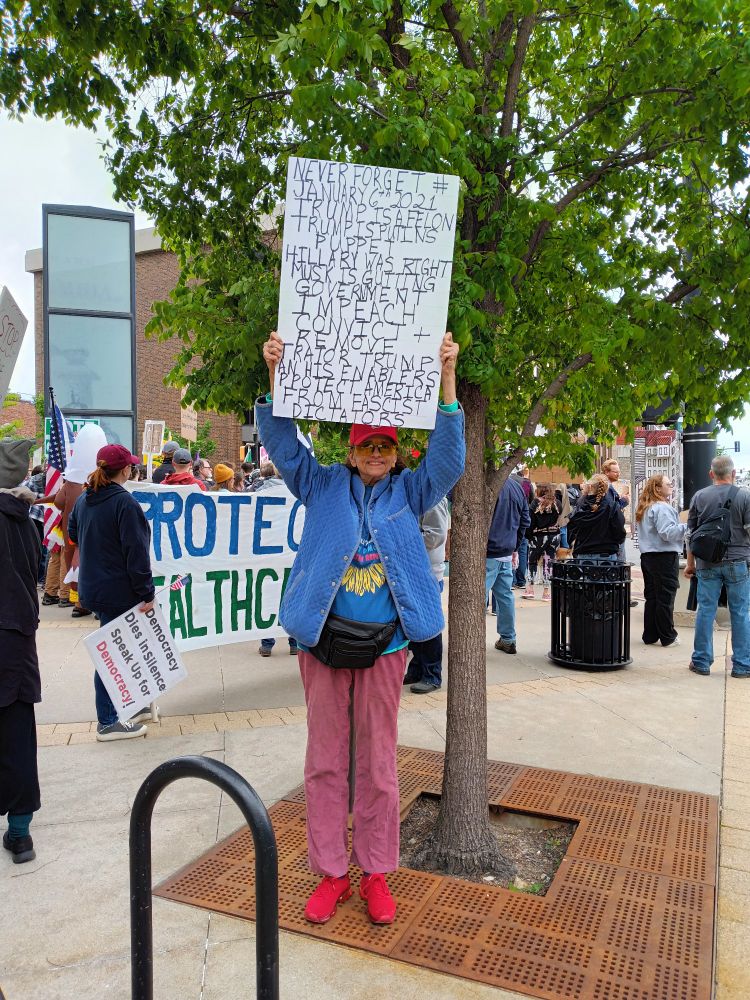 NEVER FORGET #
JANUARY 6TH 2021
TRUMP IS A FELON
TRUMP IS PUTINS
PUPPET
HILLARY WAS RIGHT
MUSK IS GUTTING
GOVERNMENT
IMPEACH
CONVICT +
REMOVE
TRATOR TRUMP
AN HIS ENABLERS
PROTECT AMERICA
FROM FASCIST
DICTATORS
PROTEC
EALTHCA
Democracy
Dies in Silence
Speak Up for
Democracy!
STOP